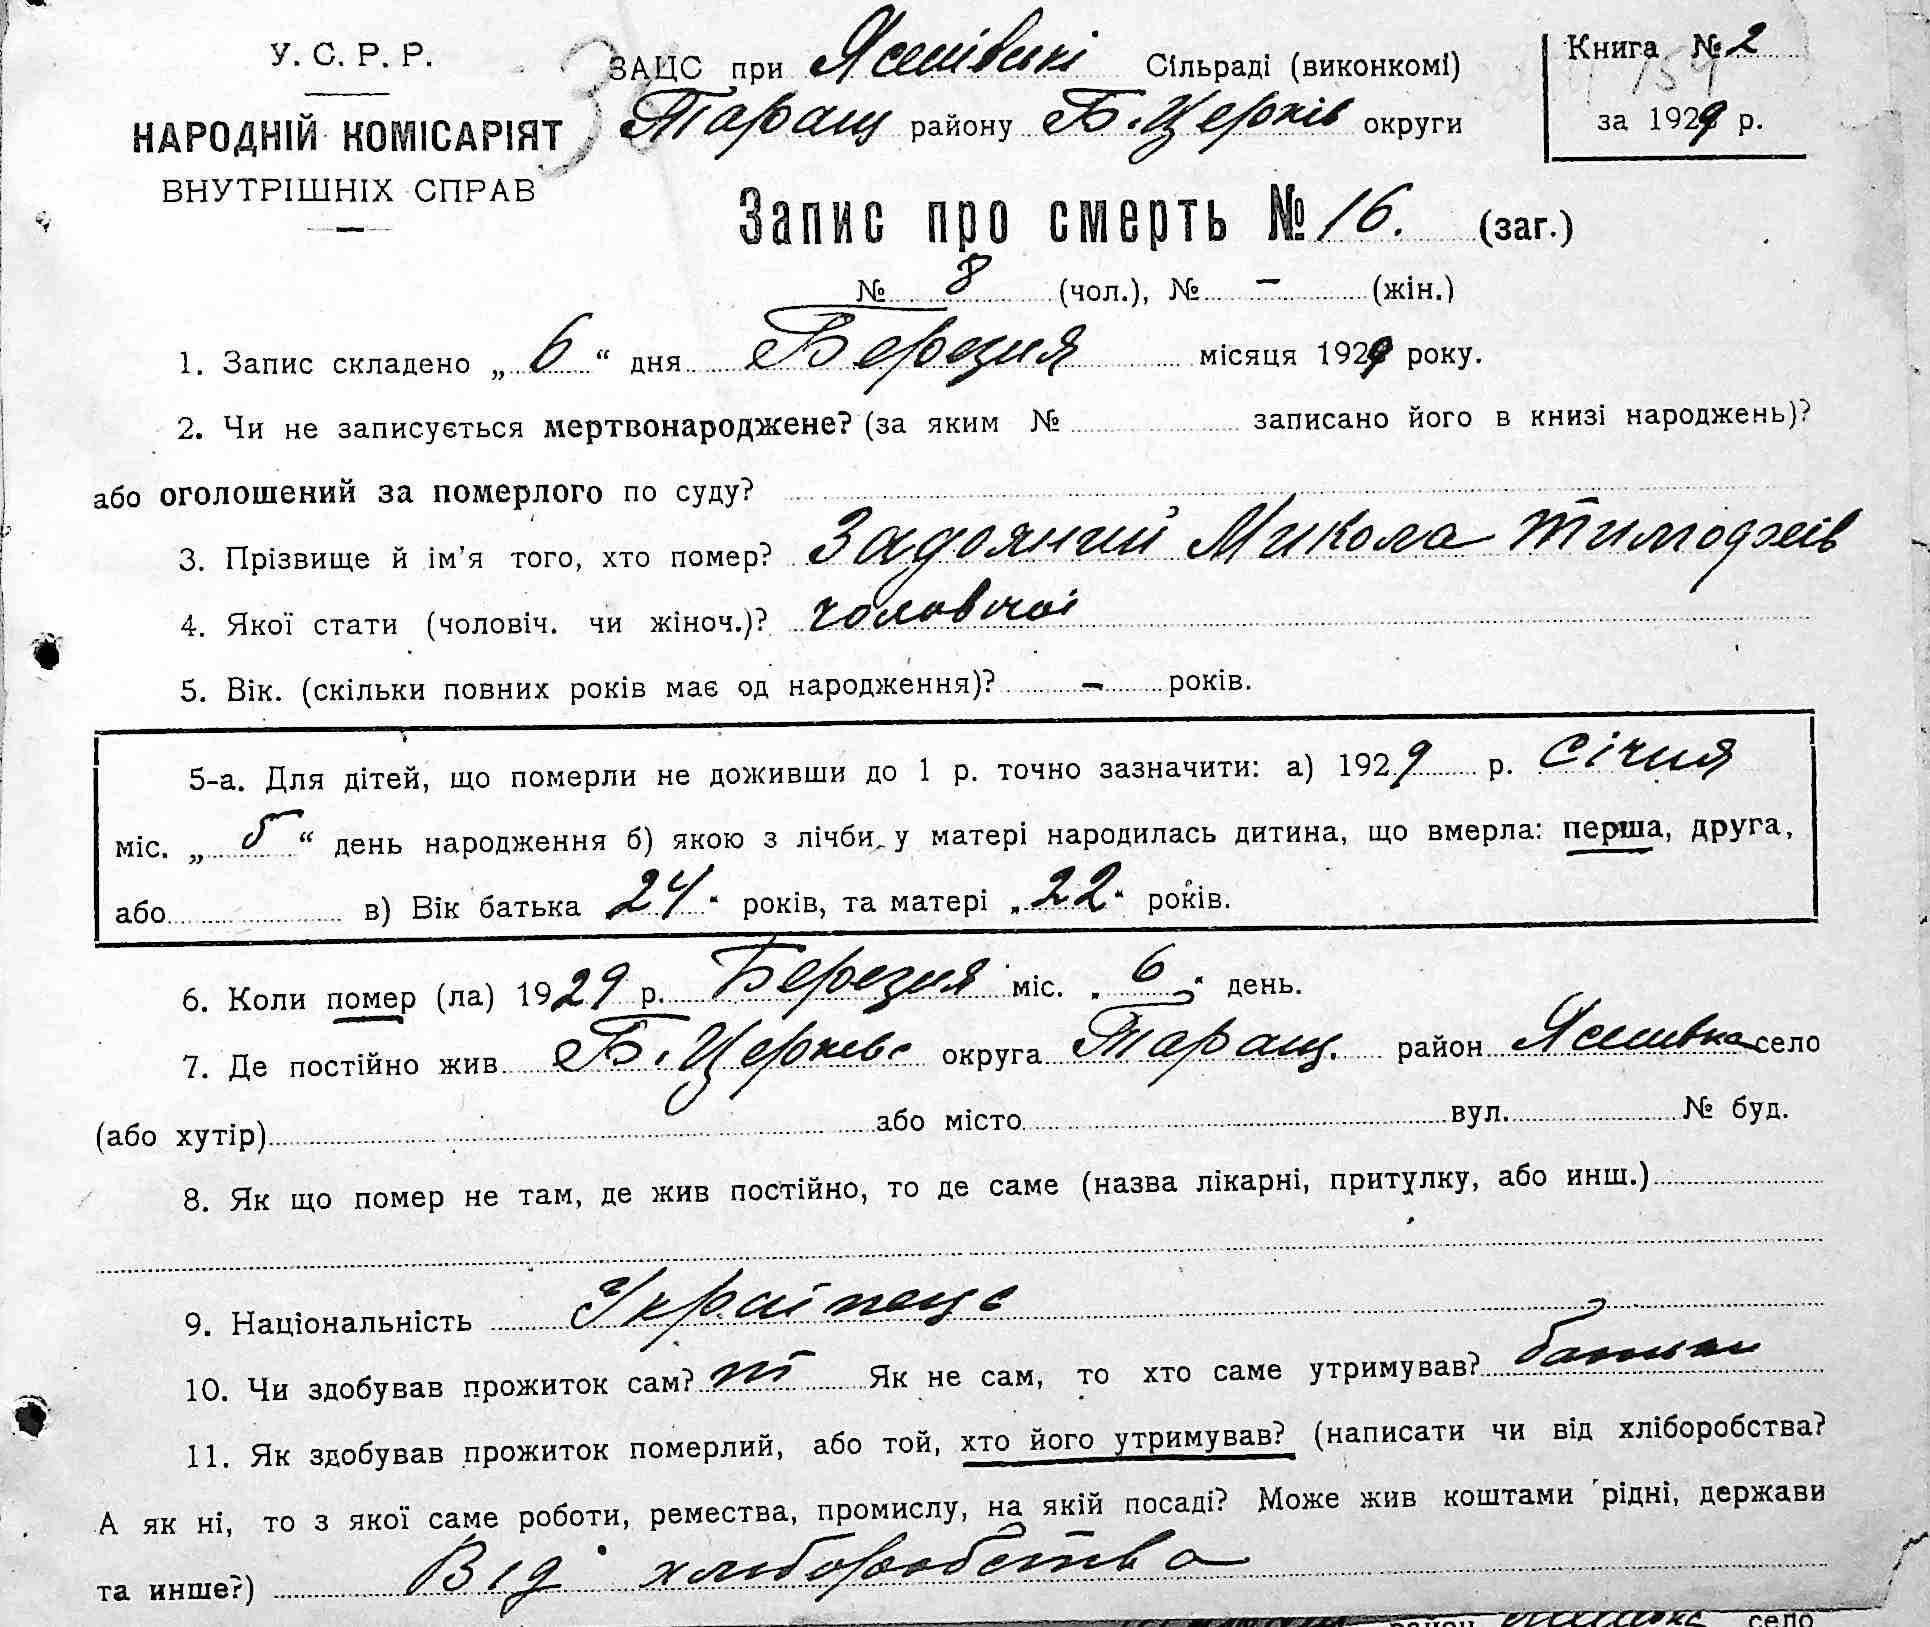 У. С. Р. Р.
НАРОДНІЙ КОМІСАРІЯТ
ВНУТРІШНІХ СПРАВ
ЗАЦС при Ясенівські Сільраді (виконкомі)
Таращ району Б. Церків округи
Книга № 2
за 1929 р.
Запис про смерть № 16. (заг.)
№ 8 (чол.), № – (жін.)
1. Запис складено „ 6 “ дня Березня місяця 1929 року.
2. Чи не записується мертвонароджене? (за яким № записано його в книзі народжень)?
або оголошений за померлого по суду?
3. Прізвище й ім’я того, хто помер? Задояний Микола Тимофеїв
4. Якої стати (чоловіч. чи жіноч.)? чоловічої
5. Вік. (скільки повних років має од народження)? – років.
5-а. Для дітей, що померли не доживши до 1 р. точно зазначити: а) 1929 р. Січня
міс. „ 5 “ день народження б) якою з лічби у матері народилась дитина, що вмерла: перша, друга,
або в) Вік батька 24 “ років, та матері „ 22 “ років.
6. Коли помер (ла) 1929 р. Березня міс. „ 6 “ день.
7. Де постійно жив Б. Церківс округа Таращ. район Ясенівка село
(або хутір) або місто вул. № буд.
8. Як що помер не там, де жив постійно, то де саме (назва лікарні, притулку, або инш.)
9. Національність Українець
10. Чи здобував прожиток сам? ні Як не сам, то хто саме утримував? батьки
11. Як здобував прожиток померлий, або той, хто його утримував? (написати чи від хліборобства?
А як ні, то з якої саме роботи, ремества, промислу, на якій посаді? Може жив коштами рідні, держави
та инше?) Від хліборобства
район село